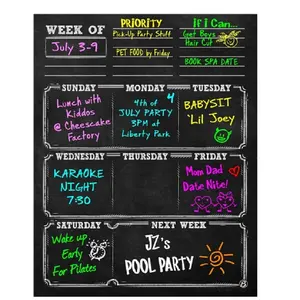 WEEK OF
July 3-9
PRIORITY
Pick-Up Party Stuff
PET FOOD by Friday
If I Can...
Get Boys
Hair Cut
BOOK SPA DATE
SUNDAY
Lunch with
Kiddos
@ Cheesecake
Factory
MONDAY
4
4th of
JULY PARTY
3PM at
Liberty Park
TUESDAY
BABYSIT
'Lil Joey
WEDNESDAY
KARAOKE
NIGHT
7:30
THURSDAY
FRIDAY
Mom Dad
Date Nite!
SATURDAY
Wake up
Early
For Pilates
NEXT WEEK
JZ's
POOL PARTY